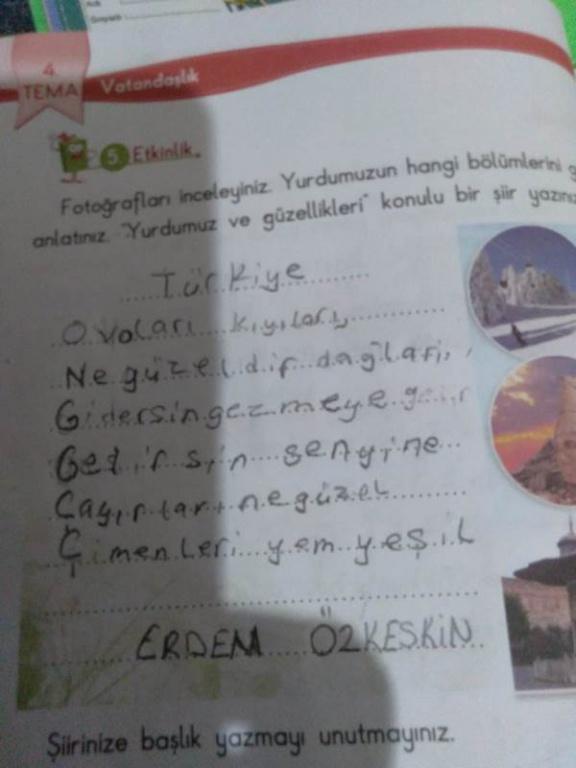 4.
TEMA
Vatandaşlık
5. Etkinlik.
Fotoğrafları inceleyiniz. Yurdumuzun hangi bölümlerini
anlatınız. "Yurdumuz ve güzellikleri" konulu bir şiir yazınız
Türkiye
Ovaları kıyıları,
Ne güzeldir dağları,
Gidersin gezmeye
Gelirsin senyine
Çayırları ne güzel
Çimenleri yem yeşil
ERDEM ÖZKESKİN
Şiirinize başlık yazmayı unutmayınız.